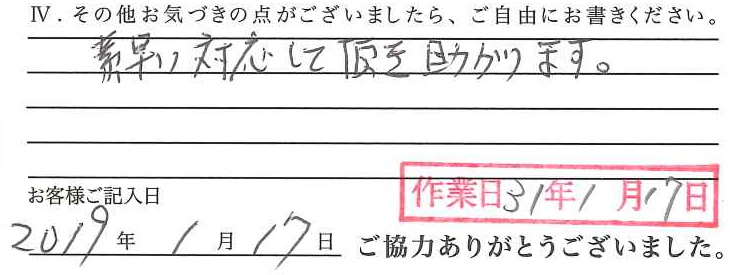 Ⅳ．その他お気づきの点がございましたら、ご自由にお書きください。
素早い対応して頂き助かります。
お客様ご記入日
作業日31年1月17日
2019年1月17日
ご協力ありがとうございました。